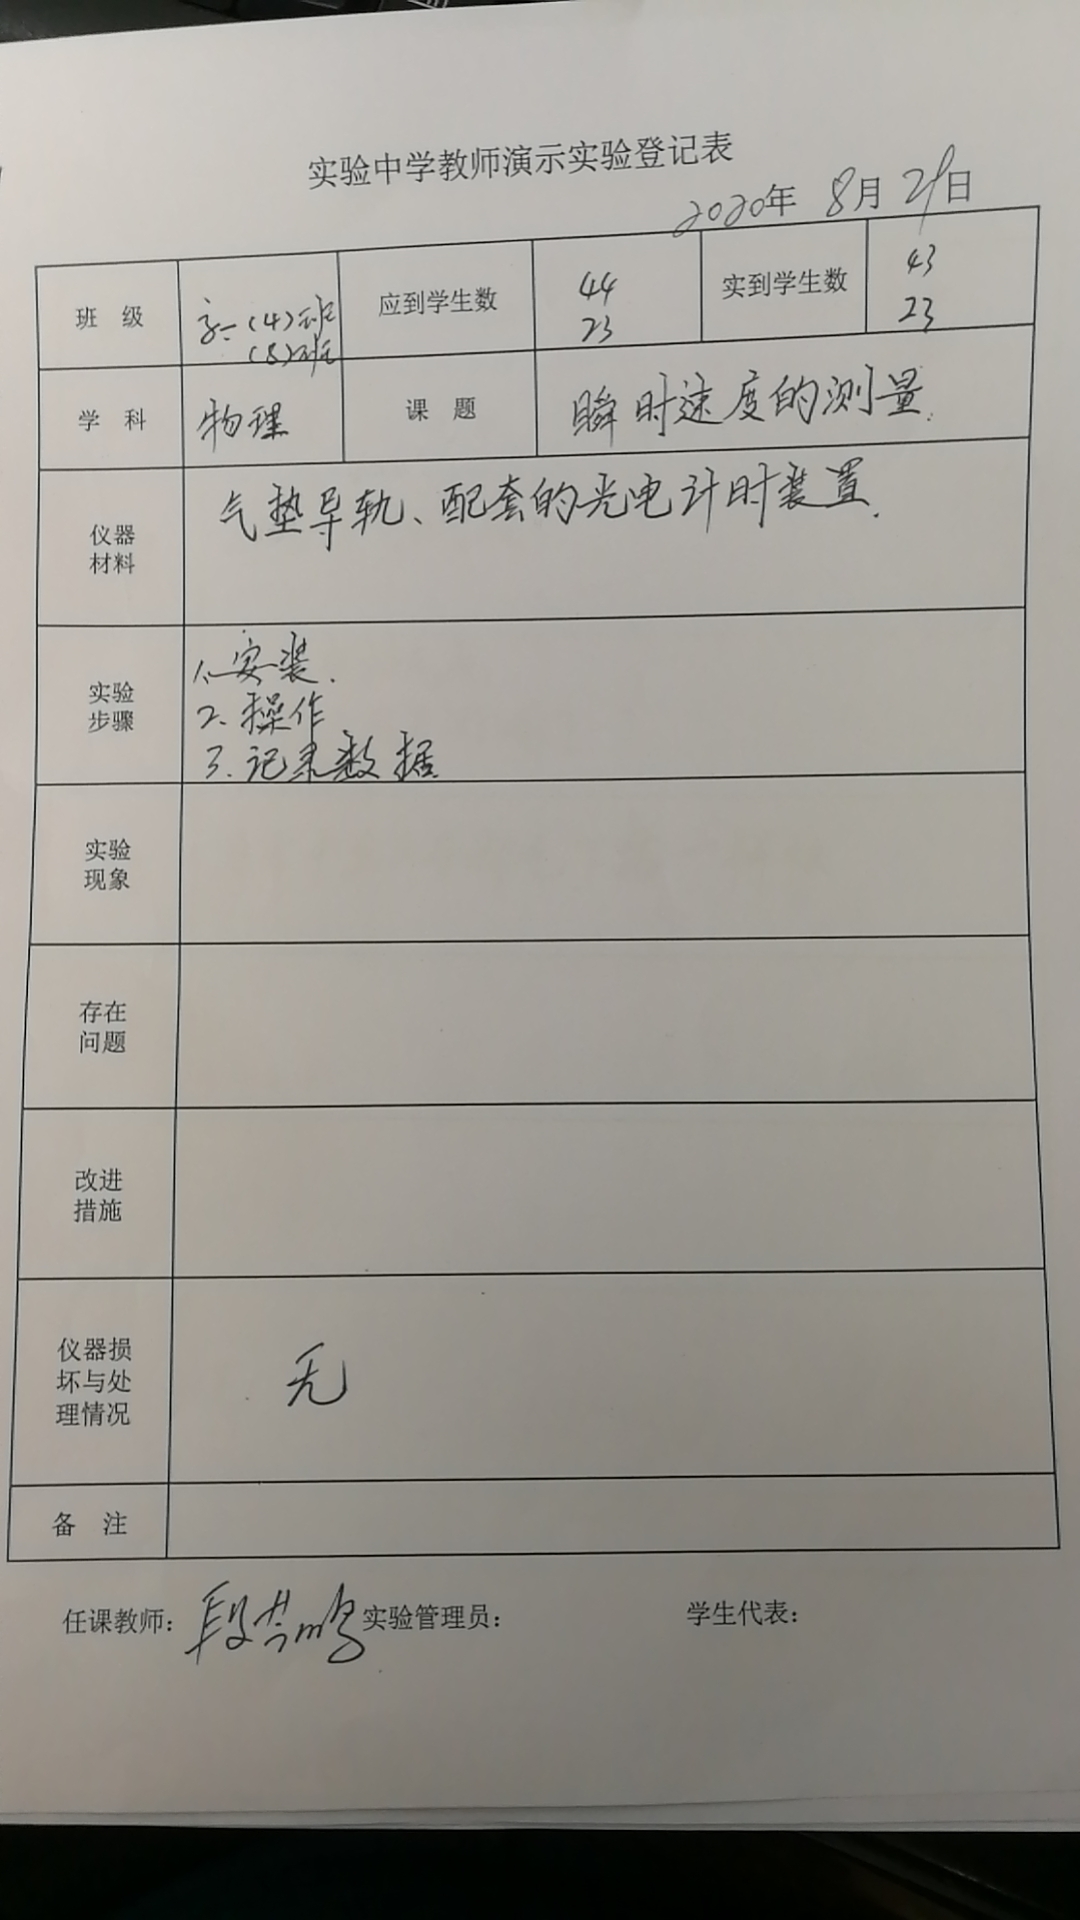 实验中学教师演示实验登记表
2020年 8月29日
班 级 高一(4)班 应到学生数 44 实到学生数 43
(8)班 23 23
学 科 物理 课 题 瞬时速度的测量.
仪器 气垫导轨、配套的光电计时装置.
材料
1. 安装.
实验 2. 操作
步骤 3. 记录数据
实验
现象
存在
问题
改进
措施
仪器损
坏与处 无
理情况
备 注
任课教师: 段 鹏 实验管理员: 学生代表: